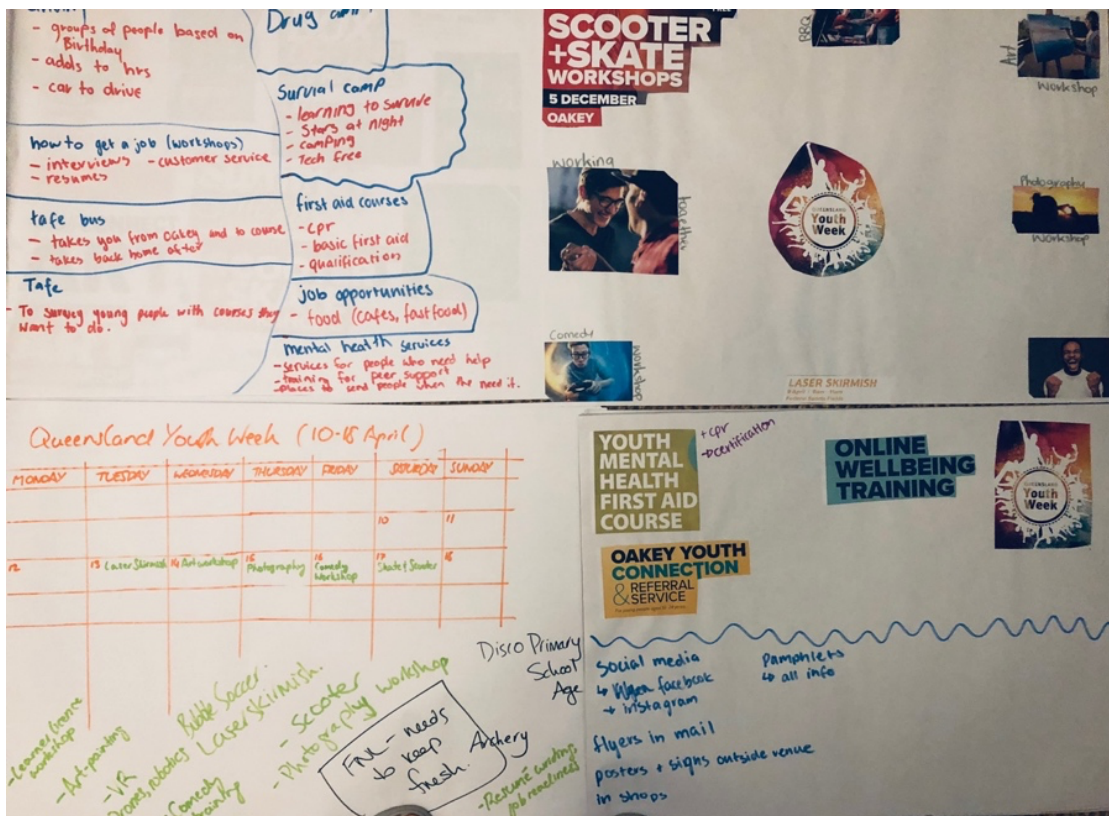 - groups of people based on
Birthday
- adds to hrs
- car to drive
how to get a job (workshops)
- interviews - customer service
- resumes
tafe bus
- takes you from oakey and to course
- takes back home after
Tafe
- To survey young people with courses they
want to do.
Drug camp
Survial camp
- learning to survive
- Stars at night
- camping
- Tech free
first aid courses
- cpr
- basic first aid
- qualification
job opportunities
- food (cafes, fast food)
mental health services
- services for people who need help
- training for peer support
- places to send people when the need it.
SCOOTER
+SKATE
WORKSHOPS
5 DECEMBER
OAKEY
BBQ
Art
Workshop
working
together
QUEENSLAND
Youth
Week
Photography
Workshop
Comedy
Workshop
LASER SKIRMISH
Queensland Youth Week (10-18 April)
MONDAY TUESDAY WEDNESDAY THURSDAY FRIDAY SATURDAY SUNDAY
10 11
12 13 Laser Skirmish 14 Art workshop 15 Photography 16 Comedy Workshop 17 Skate & Scooter 18
- Learner Driver
workshop
- Art-painting
- VR
Drones, robotics
Comedy
training
Bubble Soccer
Laser skirmish.
- Scooter
- Photography workshop
FNL - needs
to keep
fresh.
Disco Primary
School
Age
Archery
- Resumé writing
job readiness
YOUTH
MENTAL
HEALTH
FIRST AID
COURSE
+ cpr
certification
ONLINE
WELLBEING
TRAINING
QUEENSLAND
Youth
Week
OAKEY YOUTH
CONNECTION
& REFERRAL
SERVICE
Social media
↳ facebook
+ instagram
Pamphlets
↳ all info
flyers in mail
posters + signs outside venue
in shops